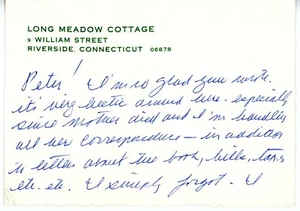 LONG MEADOW COTTAGE
9 WILLIAM STREET
RIVERSIDE, CONNECTICUT 06878
Peter! I'm so glad you wrote.
it's very hectic around here - especially
since mother died and I'm handling
all her correspondence - in addition
to letters about the book, bills, taxes
etc. etc. I simply forgot. I